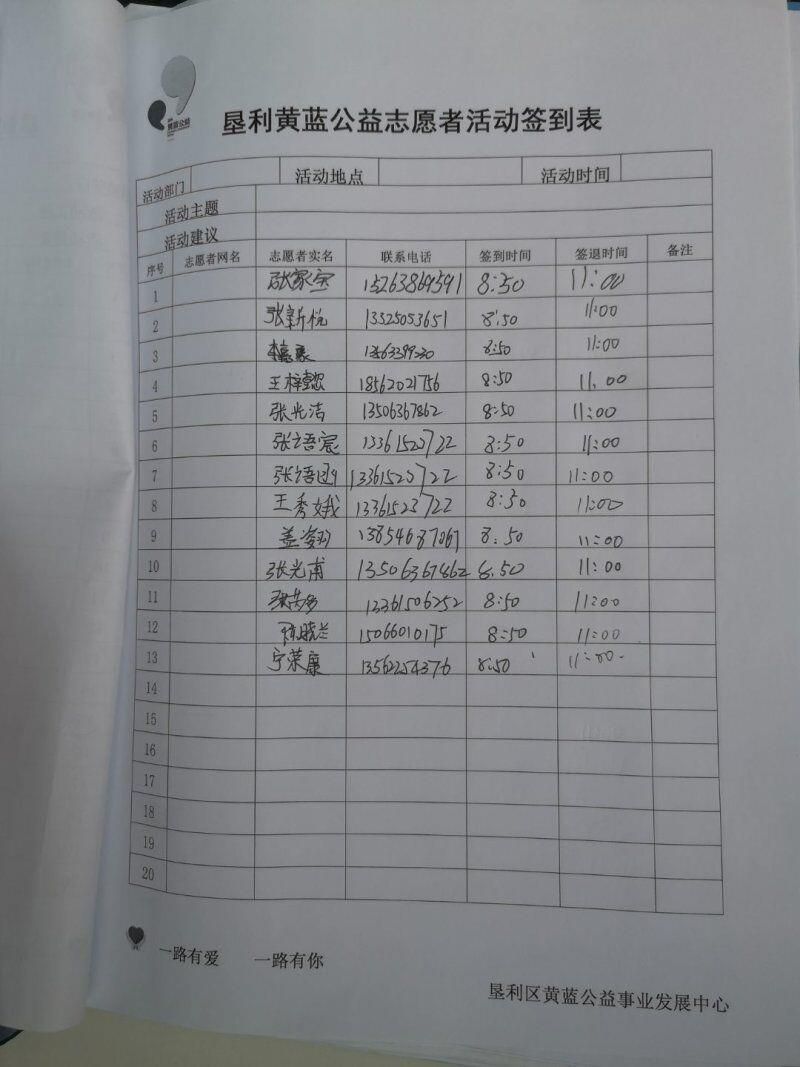 黄蓝公益
垦利黄蓝公益志愿者活动签到表
活动部门 活动地点 活动时间
活动主题
活动建议
序号 志愿者网名 志愿者实名 联系电话 签到时间 签退时间 备注
1 张家宝 15263869591 8:50 11:00
2 张新悦 13325053651 8:50 11:00
3 8:50 11:00
4 王梓懿 18562021756 8:50 11:00
5 张光洁 13506367862 8:50 11:00
6 张语宸 13361523722 8:50 11:00
7 13361523722 8:50 11:00
8 王秀娥 13361523722 8:50 11:00
9 盖姿羽 13854687067 8:50 11:00
10 张光甫 13506367862 8:50 11:00
11 13361506252 8:50 11:00
12 陈晓兰 15066010175 8:50 11:00
13 宁荣康 13562254376 8:50 11:00
14
15
16
17
18
19
20
一路有爱 一路有你
垦利区黄蓝公益事业发展中心